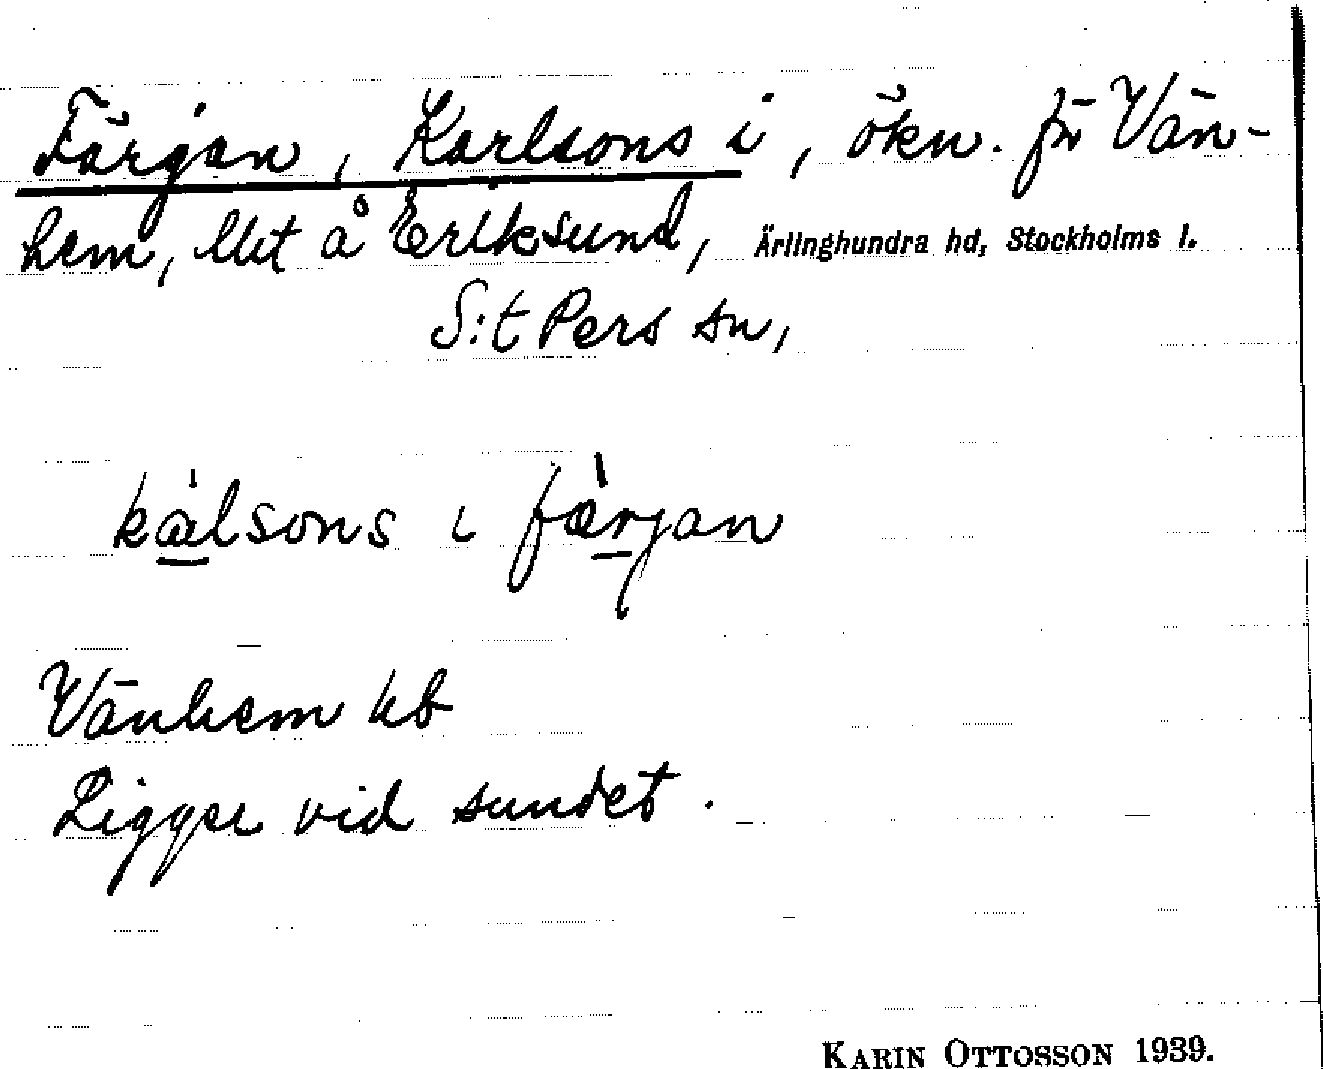 Färjan, Karlsons i, ökn. för Vän-
hem, lht å Eriksund, Ärlinghundra hd, Stockholms l.
S:t Pers sn,
kálsons i fä̀rjan
Vänhem kb
Ligger vid sundet.
KARIN OTTOSSON 1939.